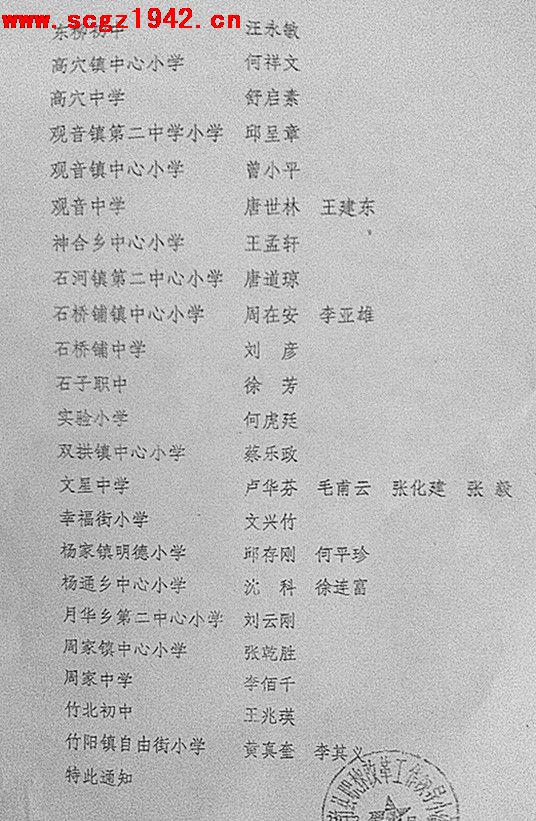 www.scgz1942.cn
东柳初中 汪永敏
高穴镇中心小学 何祥文
高穴中学 舒启素
观音镇第二中学小学 邱呈章
观音镇中心小学 曾小平
观音中学 唐世林 王建东
神合乡中心小学 王孟轩
石河镇第二中心小学 唐道琼
石桥铺镇中心小学 周在安 李亚雄
石桥铺中学 刘彦
石子职中 徐芳
实验小学 何虎廷
双拱镇中心小学 蔡乐政
文星中学 卢华芬 毛甫云 张化建 张毅
幸福街小学 文兴竹
杨家镇明德小学 邱存刚 何平珍
杨通乡中心小学 沈科 徐连富
月华乡第二中心小学 刘云刚
周家镇中心小学 张乾胜
周家中学 李佰千
竹北初中 王兆瑛
竹阳镇自由街小学 黄真奎 李其义
特此通知
县职称改革工作领导小